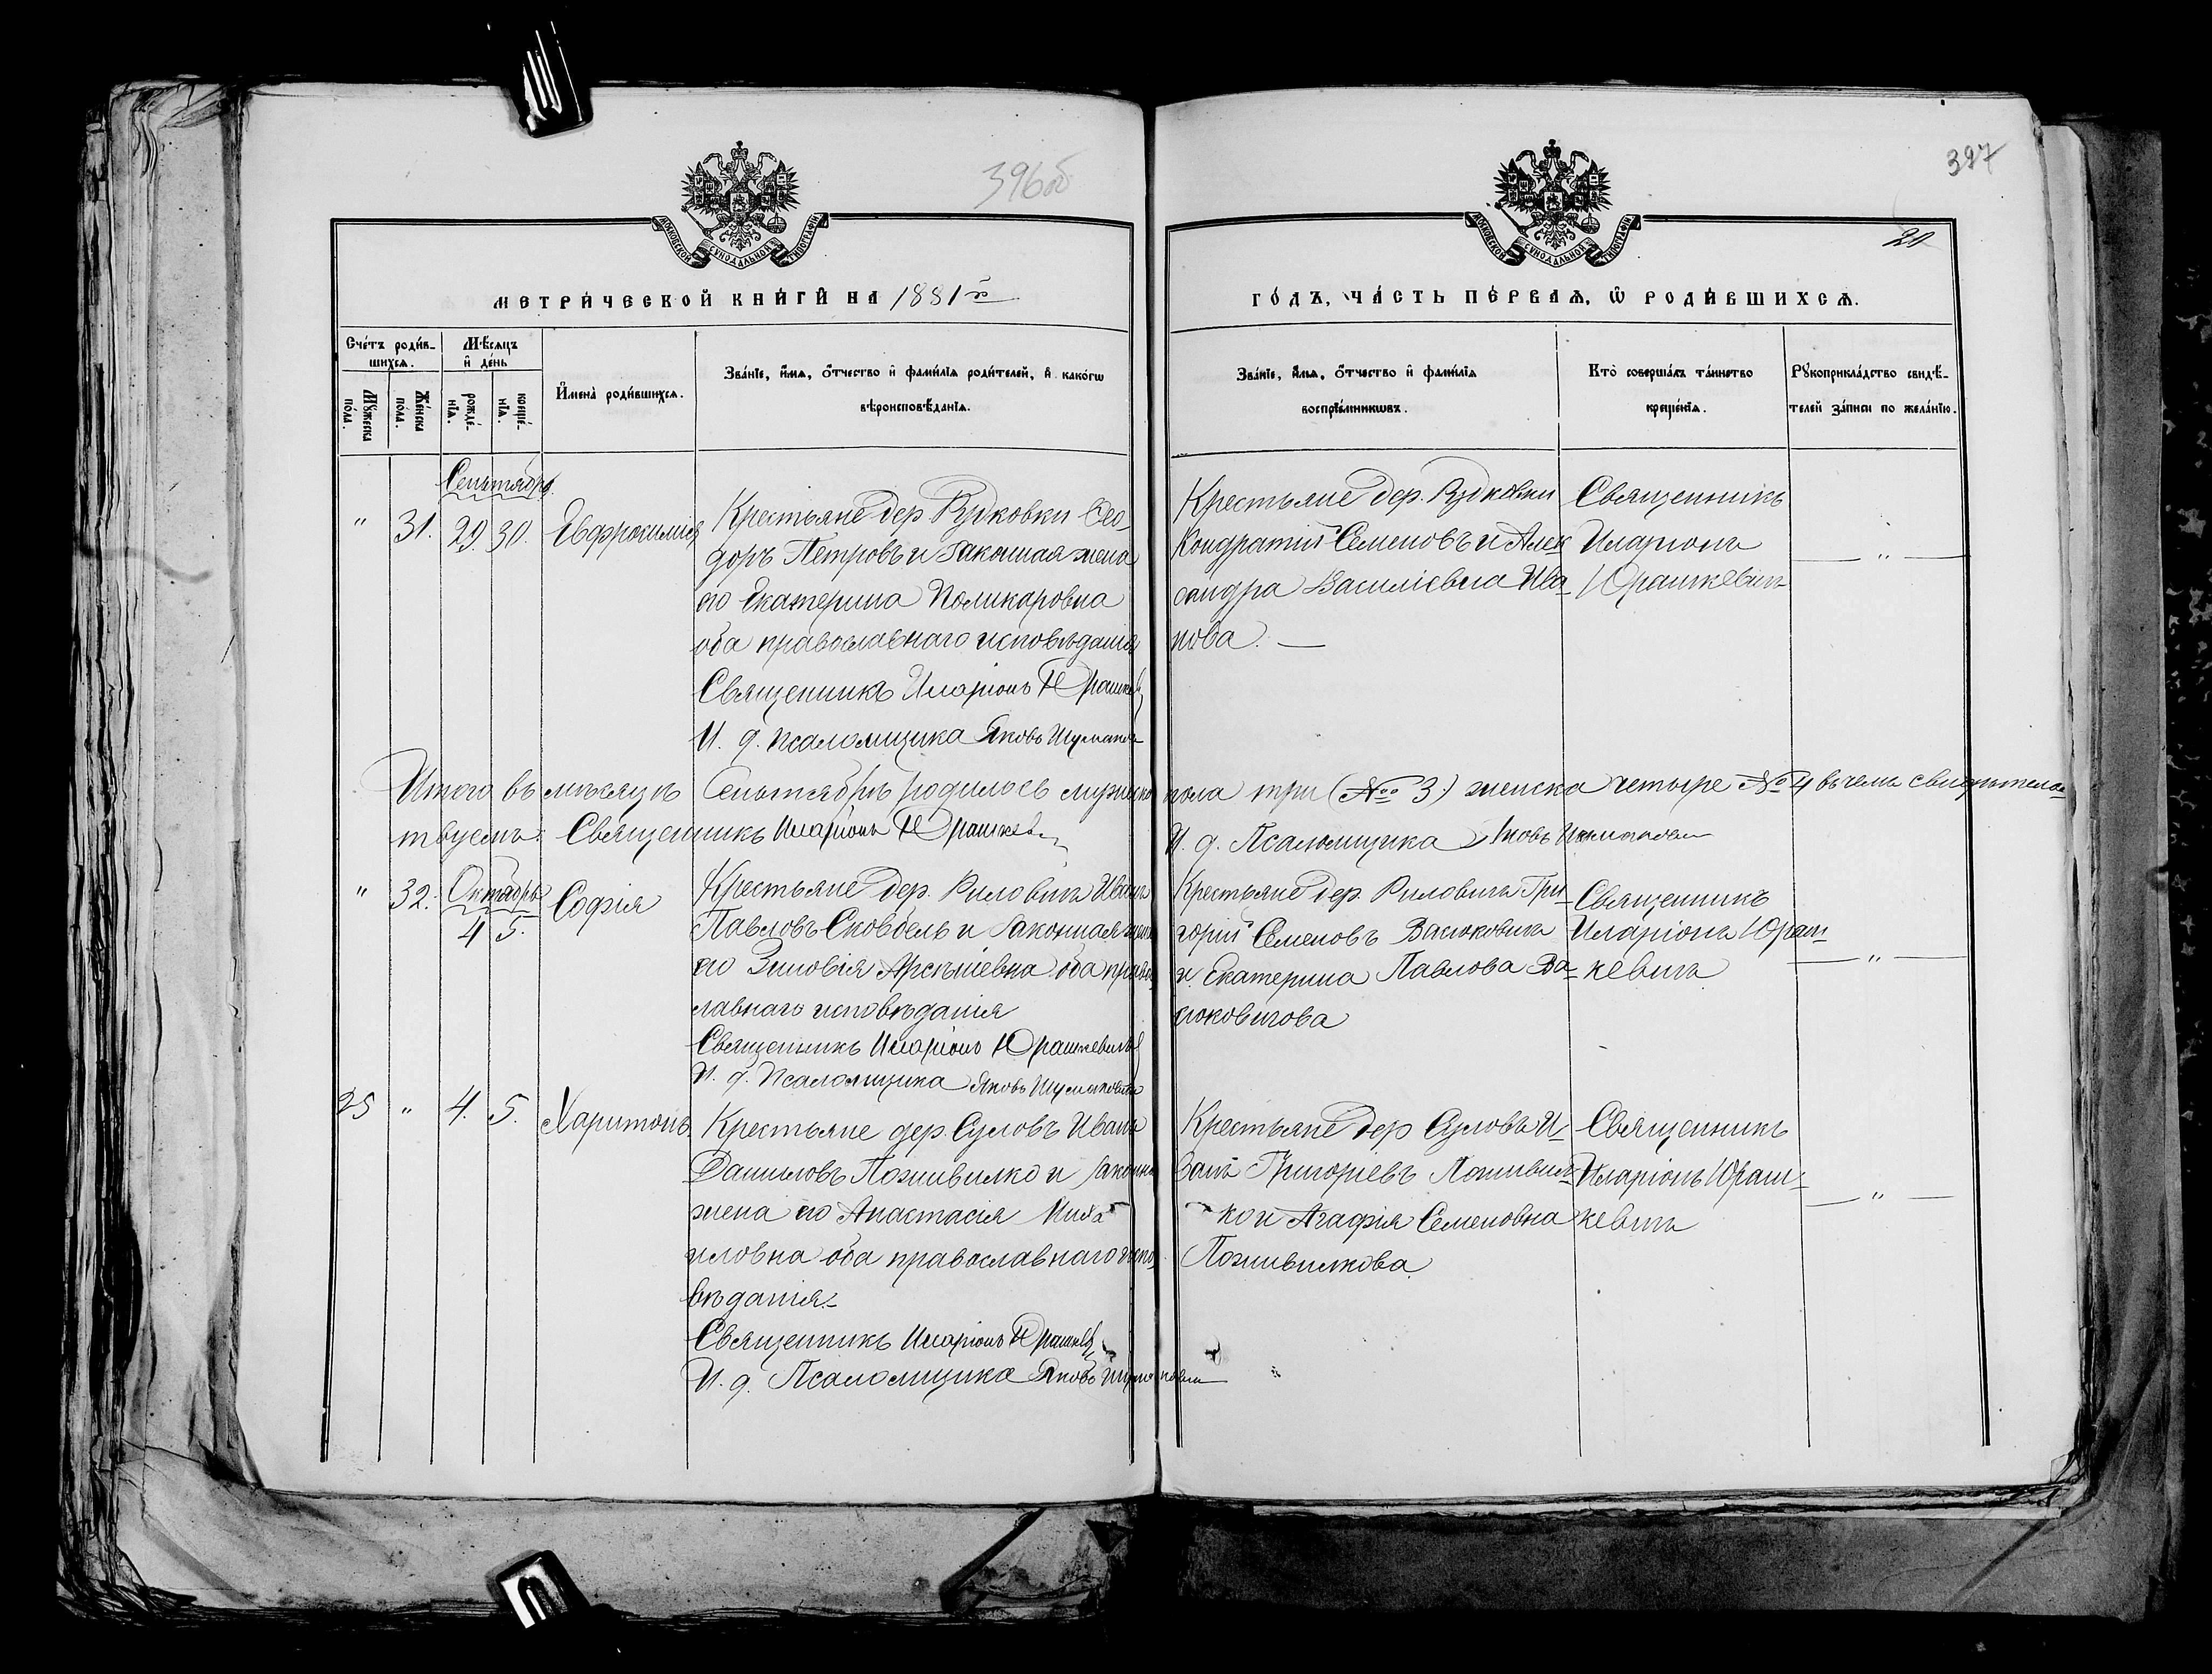 396об
397
20
МОСКОВСКОЙ СУНОДАЛЬНОЙ ТИПОГРАФІИ
МОСКОВСКОЙ СУНОДАЛЬНОЙ ТИПОГРАФІИ
МЕТРИ́ЧЕСКОЙ КНИ́ГИ НА 1881й
ГО́ДЪ, ЧА́СТЬ ПЕ́РВАѦ, Ѡ РОДИ́ВШИХСѦ.
Сче́тъ роди́в-
шихсѧ.
Мꙋ́жеска
по́ла.
Же́нска
по́ла.
Мѣ́сѧцъ
и҆ де́нь
рожде́-
нїѧ.
креще́-
нїѧ.
И҆мена̀ роди́вшихсѧ.
Зва́нїе, и҆́мѧ, ѻ҆́тчество и҆ фами́лїѧ роди́телей, и҆ како́гѡ
вѣроисповѣ́данїѧ.
Зва́нїе, и҆́мѧ, ѻ҆́тчество и҆ фами́лїѧ
воспрїе́мникѡвъ.
Кто̀ соверша́лъ та́инство
креще́нїѧ.
Рꙋкоприкла́дство свидѣ́-
телей за́писи по жела́нїю.
Сентябрь
" 31. 29. 30. Евфросинія
Крестьяне дер. Рудковки Ѳео-
доръ Петровъ и законная жена
его Екатерина Поликаровна
оба православнаго исповѣданія
Священникъ Иларіонъ Юрашкев
И. д. псаломщика Яковъ
Крестьяне дер. Рудковки
Кондратій Семеновъ и Алек
сандра Василіевна Ива-
нова. —
Священникъ
Иларіонъ
Юрашкевичъ
— " —
Итого въ мѣсяцѣ Сентябрѣ родилось мужеска пола три (№ 3) женска четыре № 4 въ чемъ свидѣтельс-
твуемъ: Священникъ Иларіонъ Юрашкев И. д. Псаломщика Яковъ
Октябрь
" 32. 4 5. Софія
Крестьяне дер. Риловичъ Иванъ
Павловъ Сковбель и законная жена
его Зиновія Арсеніевна оба право
лавнаго исповѣданія
Священникъ Иларіонъ Юрашкевичъ
И. д. Псаломщика Яковъ
Крестьяне дер. Риловичъ Гри-
горій Семеновъ Васюковичъ
и Екатерина Павлова Ва-
сюковичова
Священникъ
Иларіонъ Юраш-
кевичъ
— " —
25 " 4. 5. Харитонъ
Крестьяне дер. Суловъ Иванъ
Даниловъ Поживилко и законна
жена его Анастасія Миха
иловна оба православнаго испо
вѣданія.
Священникъ Иларіонъ Юрашкев
И. д. Псаломщика Яковъ
Крестьяне дер Суловъ И-
ванъ Григоріевъ Поживил-
ко и Агафія Семеновна
Поживилкова.
Священникъ
Иларіонъ Юраш-
кевичъ
— " —